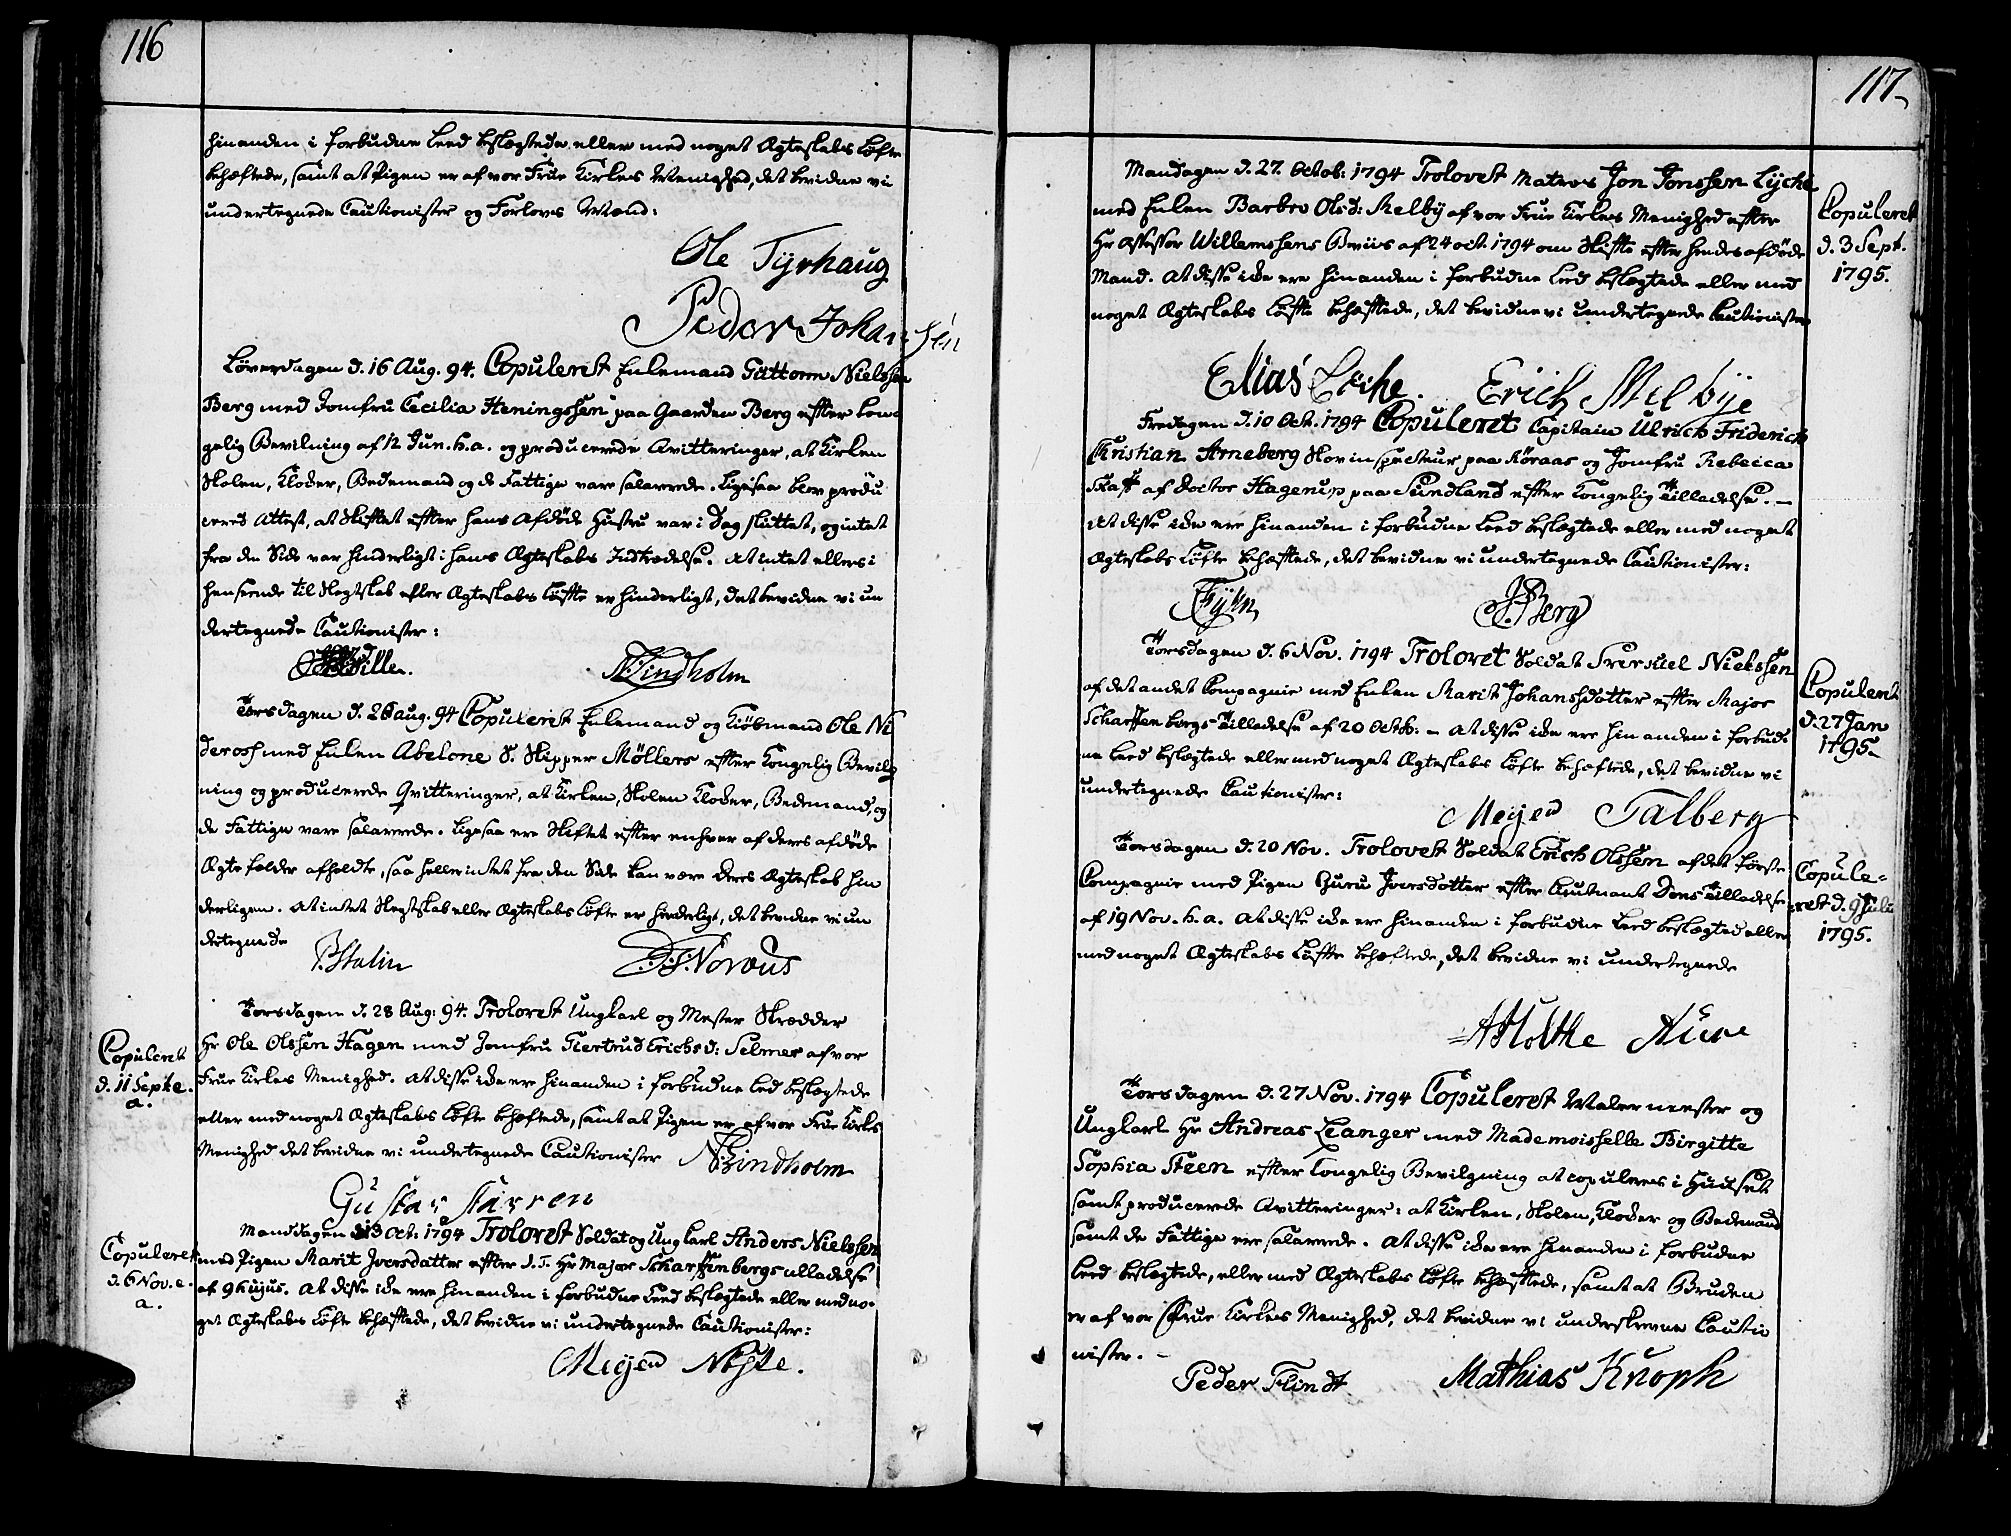 116
hinanden i forbudne Leed beslægtede eller med noget Ægteskabs Løfte
behæftede, samt at Pigen er af vor Frue Kirkes Menighed, det bevidne vi
undertegnede Cautionister og Forlovs Mænd:
Ole Tyrhaug
Peder Johansen
Løverdagen d. 16 Aug. 94. Copuleret Enkemand Guttorm Nielssen
Berg med Jomfru Cecilia Heningssen paa Gaarden Berg effter kon
gelig Bevilning af 12 Jun. h. a. og producerede Qvitteringer, at Kirken
Skolen, Klocker, Bedemand og de Fattige vare salarerede. Ligesaa blev produ
ceret Attest, at Skiftet effter hans Afdøde Hustru var i Dag sluttet, og intet
fra den Side var hinderligt i hans Ægteskabs Indtrædelse. At intet ellers i
henseende til Slegtskab eller Ægteskabs Løffte er hinderligt, det bevidne vi un
dertegnede Cautionister:
Hille. Lindholm
Torsdagen d. 28 Aug. 94 Copuleret Enkemand og Kiøbmand Ole Ni
deros med Enken Abelone S. Skipper Möllers effter Kongelig Bevilg
ning og producerede Qvitteringer, at Kirken, Skolen Klocker, Bedemand, og
de Fattige vare salarerede. Ligesaa ere Skiftet effter enhver af deres afdøde
Ægtefolder afholdte, saa heller intet fra den Side kan være deres Ægteskab hin
derligen. At intet Slegtskab eller Ægteskabs Løfte er hinderligt, det bevidne vi un
dertegnede
P. Stalin Norous
Torsdagen d. 28 Aug: 94. Troloret Ungkarl og Mester Skrædder
Hr Ole Olssen Hagen med Jomfru Giertrud Erichsd: Selmer af vor
Frue Kirkes Menighed. At disse icke ere hinanden i forbudne led beslegtede
eller med noget Ægteskabs Løfte behæftede, samt at Pigen er af vor Frue Kirkes
Menighed det bevidne vi undertegnede Cautionister Lindholm
Copuleret
d. 11 Sept. e.
a.
Gustav
Mandagen d. 13 Oct. 1794 Troloret Soldat og Ungkarl Anders Nielssen
med Pigen Marit Joersdatter effter S. T. Hr Major Scharffenbergs tilladelse
af 9 hujus. At disse icke ere hinanden i forbudne Leed beslegtede eller med no-
get Ægteskabs Løfte behæfftede, det bevidne vi undertegnede Cautionister:
Copuleret
d. 6 Nov. e.
a.
Meyer
117
Mandagen d. 27. Octob: 1794 Trolovet Matros Jon Jonssen Lyche
med Enken Barbro Olsd: Melby af vor Frue Kirkes Menighed effter
Hr Assessor Willemssens Beviis af 24 oct. 1794 om Skiffte effter hendes afdøde
Mand. At disse icke ere hinanden i forbudne Leed beslegtede eller med
noget Ægteskabs Løffte behæfftede, det bevidne vi undertegnede Cautionister
Copuleret
d. 3 Sept.
1795.
Elias Erich Melbye
Fredagen d. 10 Oct. 1794 Copuleret Capitain Ulrich Friderich
Christian Arneberg Skovinspecteur paa Røraas og Jomfru Rebecca
af Doctor Hagerup paa Sundland effter Kongelig Tilladelse. -
At disse icke ere hinanden i forbudne Leed beslegtede eller med noget
Ægteskabs Løfte behæfftede, det bevidne vi undertegnede Cautionister:
Berg
Torsdagen d. 6 Nov. 1794 Troloret Soldat Nielssen
af det andet Compagnie med Enken Marit Johansdotter effter Major
Scharffenbergs Tilladelse af 20 Octob: - At disse icke ere hinanden i forbud-
ne Leed beslegtede eller med noget Ægteskabs Løfte behæftede, det bevidne vi
undertegnede Cautionister:
Copuleret
d. 27 Jan
1795.
Meyer Talberg
Torsdagen d. 20 Nov. Trolovet Soldat Erich Olssen af det første
Compagnie med Pigen Guru Joersdotter effter Lieutnant Dons Tilladelse
af 19 Nov. h. a. At disse icke ere hinanden i forbudne Leed beslegted eller
med noget Ægteskabs Løffte behæftede, det bevidne vi undertegnede
Copule-
ret d. 9 Juli
1795.
A Holthe
Torsdagen d. 27 Nov. 1794 Copuleret Malermester og
Ungkarl Hr Andreas Leanger med Mademoisselle Birgitte
Sophia Steen effter Kongelig Bevilgning at copuleres i Huuset
samt producerede Qvitteringer: at Kirken, Skolen, Klocker og Bedemand
samt de Fattige ere salarerede. At disse icke ere hinanden i forbudne
Leed beslegtede, eller med Ægteskabs Løfte behæfftede, samt at Bruden
er af vor Frue Kirkes Menighed, det bevidne vi underskrevne Cautio
nister. -
Peder Flindt Mathias Knoph